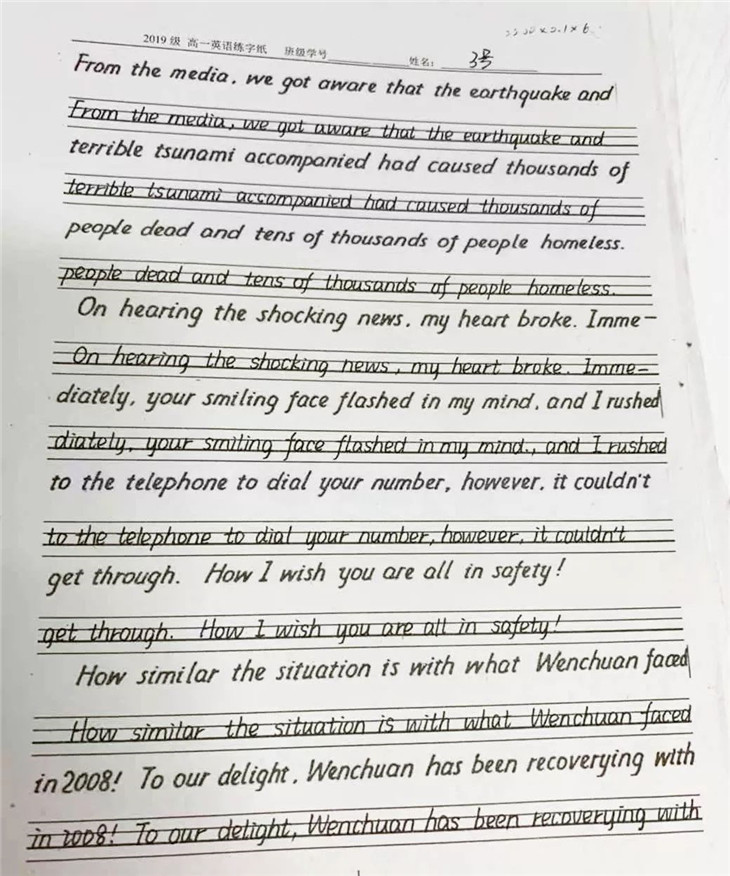 2019级 高一英语练字纸 班级学号 姓名： 3号
From the media, we got aware that the earthquake and
From the media, we got aware that the earthquake and
terrible tsunami accompanied had caused thousands of
terrible tsunami accompanied had caused thousands of
people dead and tens of thousands of people homeless.
people dead and tens of thousands of people homeless.
On hearing the shocking news, my heart broke. Imme-
On hearing the shocking news, my heart broke. Imme-
diately, your smiling face flashed in my mind, and I rushed
diately, your smiling face flashed in my mind., and I rushed
to the telephone to dial your number, however, it couldn't
to the telephone to dial your number, however, it couldn't
get through. How I wish you are all in safety!
get through. How I wish you are all in safety!
How similar the situation is with what Wenchuan faced
How similar the situation is with what Wenchuan faced
in 2008! To our delight, Wenchuan has been recoverying with
in 2008! To our delight, Wenchuan has been recoverying with
1